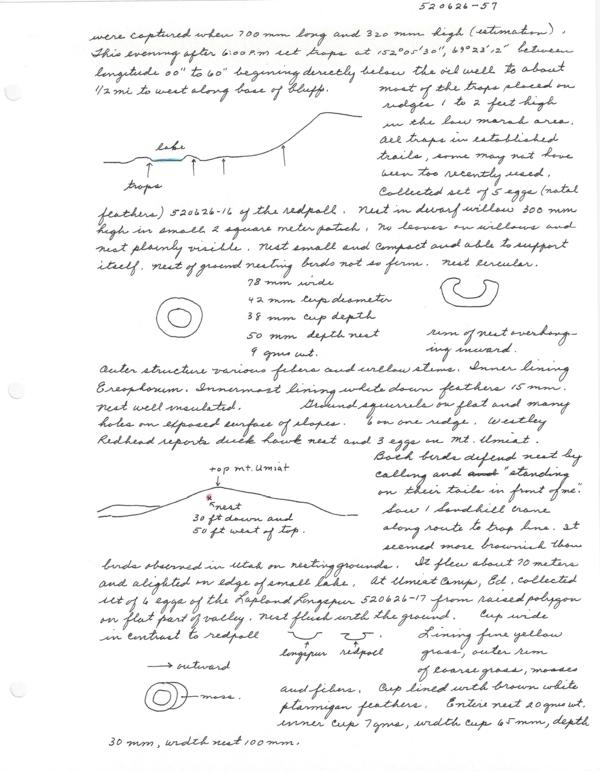 520626-57
were captured when 700 mm long and 320 mm high (estimation).
This evening after 6:00 P.m set traps at 152°05'30", 69°23'12" between
longitude 00" to 60" begining directly below the oil well to about
1/2 mi to west along base of bluff.
most of the traps placed on
ridges 1 to 2 feet high
in the low marsh area.
All traps in established
trails, some may not have
been too recently used.
Collected set of 5 eggs (natal
lake
traps
feathers) 520626-16 of the redpoll. Nest in dwarf willow 300 mm
high in small 2 square meter patch. No leaves on willows and
nest plainly visible. Nest small and compact and able to support
itself. Nest of ground nesting birds not so firm. Nest circular.
78 mm wide
42 mm cup diameter
38 mm cup depth
50 mm depth nest
9 gms wt.
rim of nest overhang-
ing inward.
Outer structure various fibers and willow stems. Inner lining
Ereophorum. Innermost lining white down feathers 15 mm.
Nest well insulated. Ground squirrels on flat and many
holes on exposed surface of slopes. 6 on one ridge. Westley
Redhead reports duck hawk nest and 3 eggs on Mt. Umiat.
Both birds defend nest by
calling and and "standing
on their tails in front of me".
Saw 1 Sandhill crane
along route to trap line. It
seemed more brownish than
top mt. Umiat
nest
30 ft down and
50 ft west of top.
birds observed in Utah on nesting grounds. It flew about 70 meters
and alighted on edge of small lake. At Umiat Camp, Ed. collected
set of 6 eggs of the Lapland Longspur 520626-17 from raised polygon
on flat part of valley. Nest flush with the ground. Cup wide
in contrast to redpoll
longspur redpoll
Lining fine yellow
grass, outer rim
of coarse grass, mosses
outward
moss.
and fibers. Cup lined with brown white
ptarmigan feathers. Entire nest 20 gms wt.
inner cup 7 gms, width cup 65 mm, depth
30 mm, width nest 100 mm.